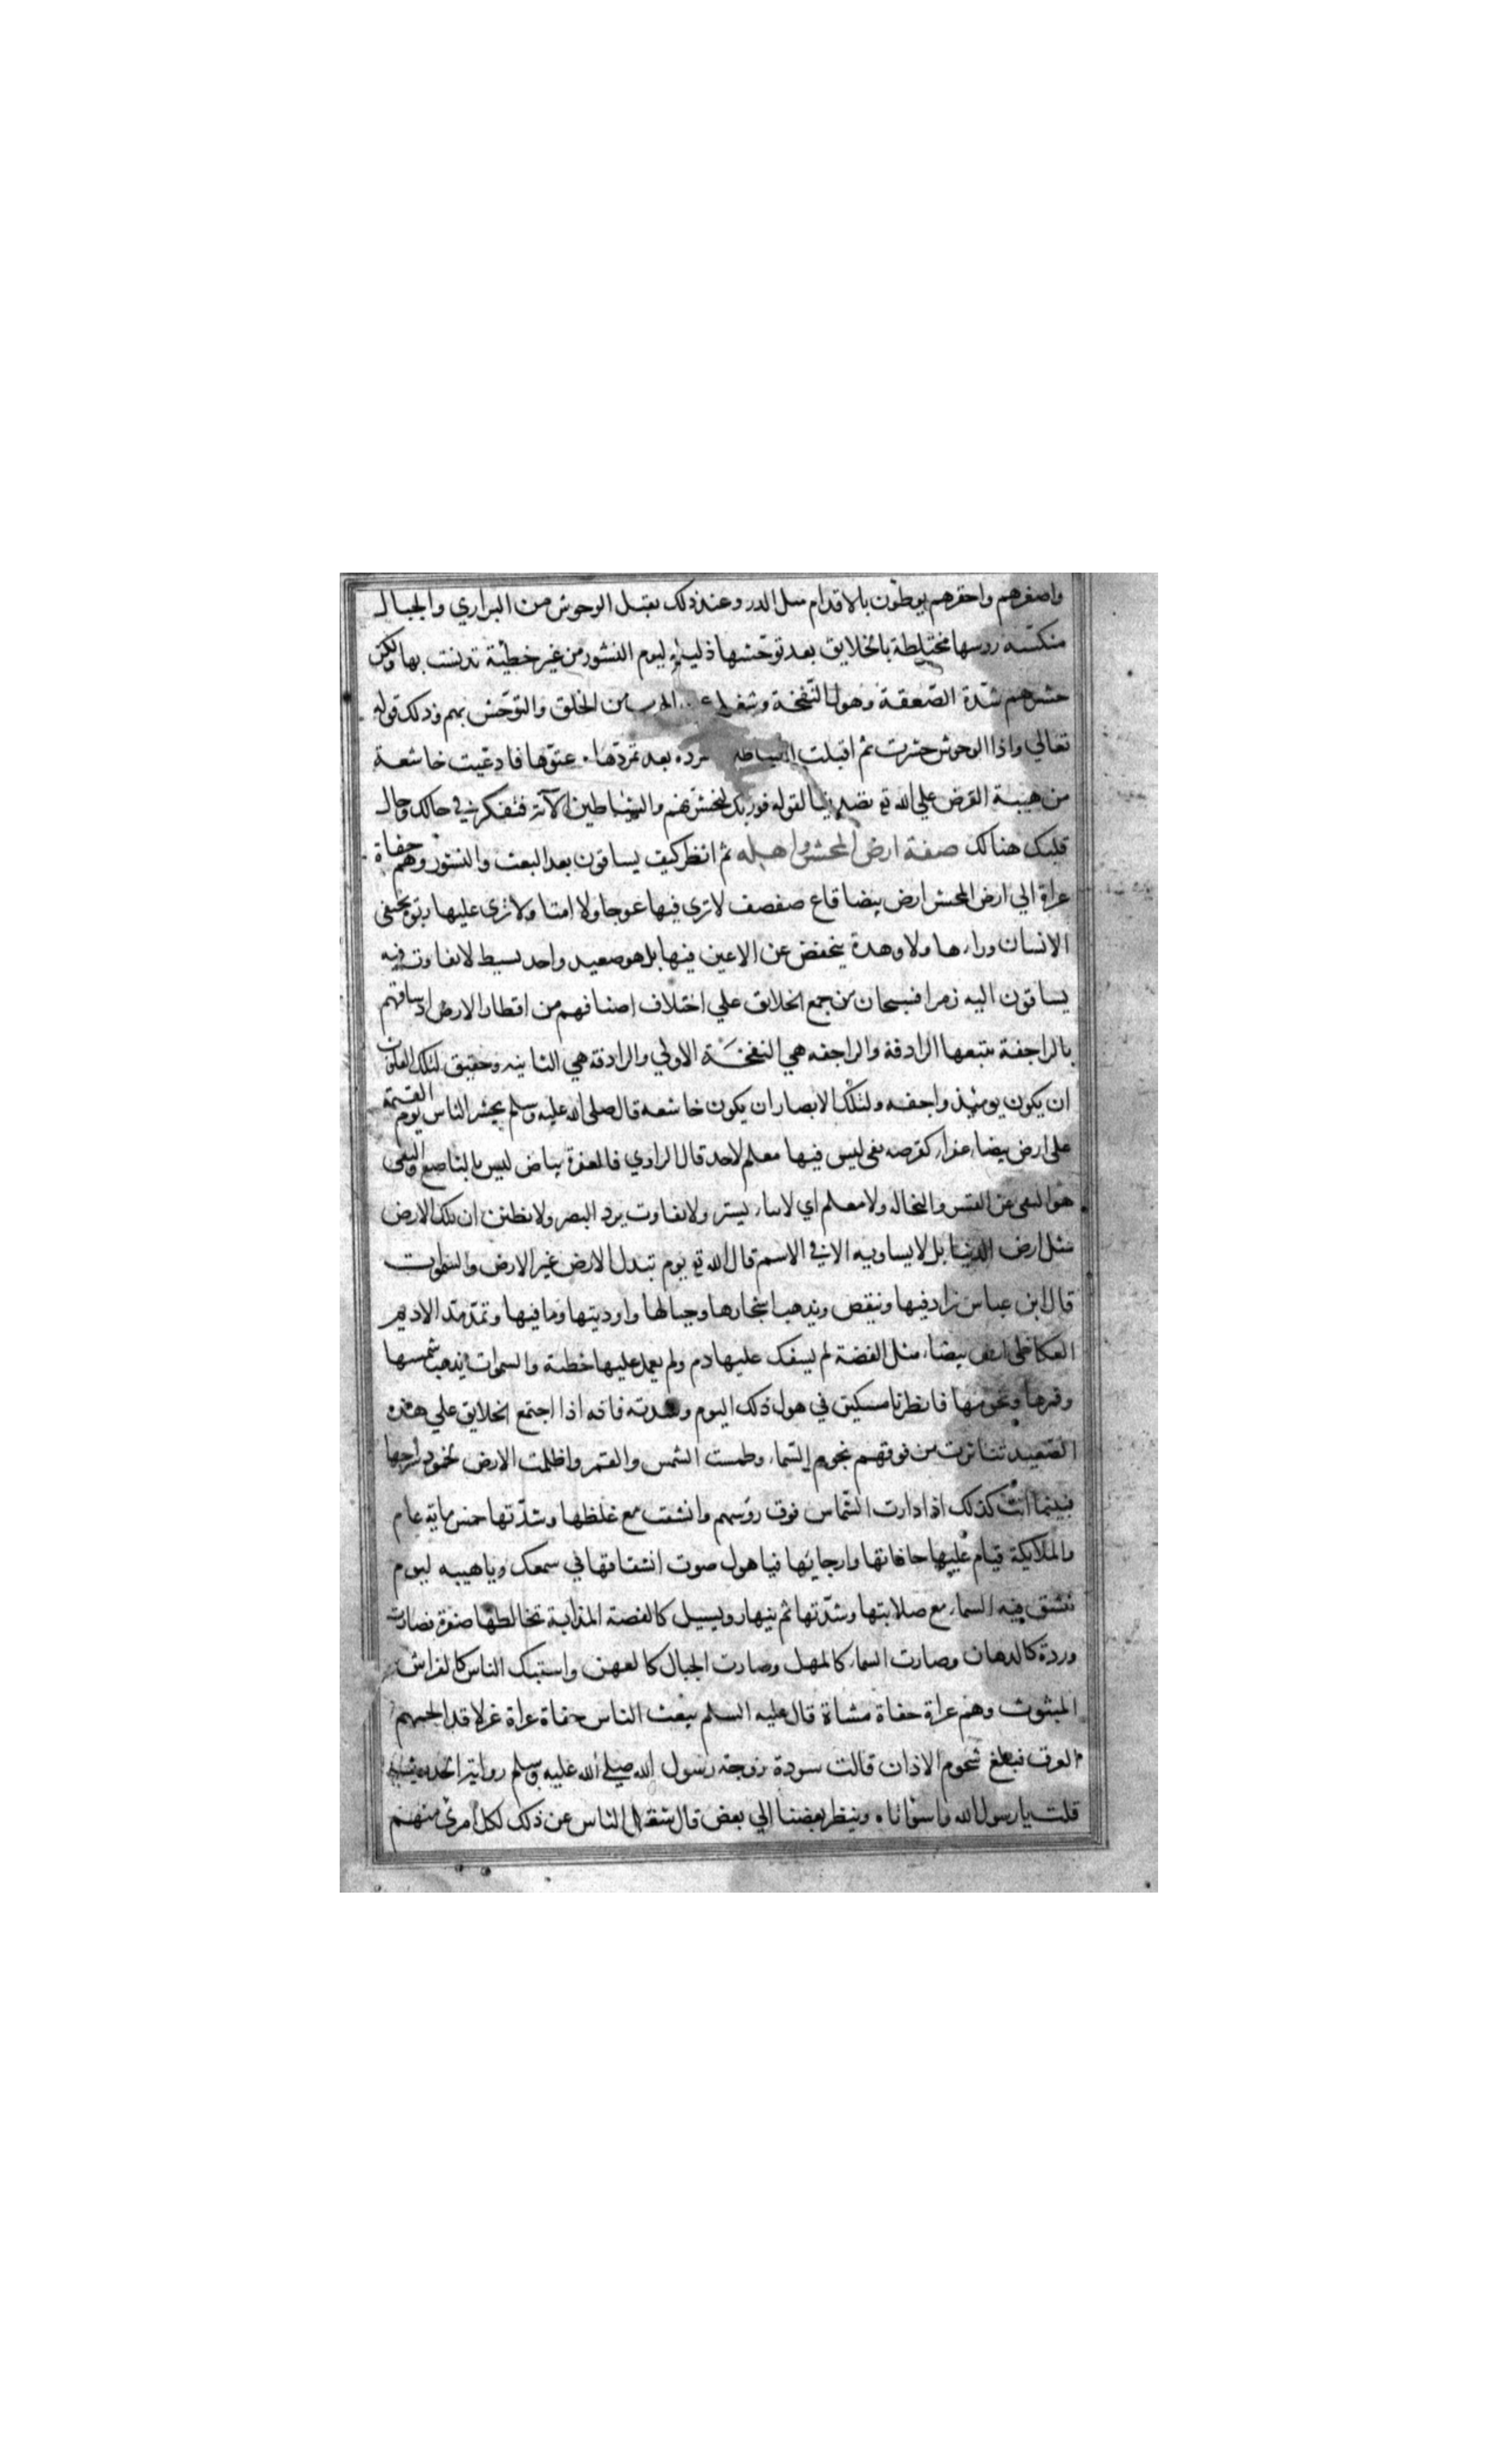 واصغرهم واحقرهم يوطون بالاقدام مثل الدر وعند ذلك تقبل الوحوش من البراري والجبال
منكسه روسها مختلطة بالخلايق بعد توحشها ذليله ليوم النشور من غير خطيئة تدنست بها ولكن
حشرهم شدة الصعقة وهول النفخة وشغلها الهرب من الخلق والتوحش بهم وذلك قوله
تعالي واذا الوحوش حشرت ثم اقبلت الشياطين بعد تمردها وعتوها فادعيت خاشعة
من هيبة العرض علي الله تع تصديقا لقوله فوربك لنحشرنهم والشياطين الآية فتفكر في حالك وحال
قلبك هنالك صفة ارض المحشر واهله ثم انظر كيف يساقون بعد البعث والنشور وهم حفاة
عراة الي ارض المحشر ارض بيضا قاع صفصف لا تري فيها عوجا ولا امتا ولا تري عليها ربوة يختفى
الانسان وراءها ولا وهدة ينخفض عن الاعين فيها بل هو صعيد واحد بسيط لا تفاوت فيه
يساقون اليه زمرا فسبحان من جمع الخلايق علي اختلاف اصنافهم من اقطار الارض اذ ساقهم
بالراجفة تتبعها الرادفة والراجفه هي النفخة الاولي والرادفة هي الثانيه وحقيق لتلك القلوب
ان يكون يومئذ واجفه ولتلك الابصار ان يكون خاشعه قال صلى الله عليه وسلم يحشر الناس يوم القيمة
على ارض بيضاء عفراء كقرصه نقى ليس فيها معلم لاحد قال الراوي فالعفرة بياض ليس بالناصع والنقى
هو النقى عن القشر والنخاله ولا معلم اي لا بناء يستر ولا تفاوت يرد البصر ولا تظنن ان تلك الارض
مثل ارض الدنيا بل لا يساويه الا في الاسم قال الله تع يوم تبدل الارض غير الارض والسموات
قال ابن عباس يزاد فيها وينقص ويذهب اشجارها وجبالها واوديتها وما فيها وتمد مد الاديم
العكاظى ارض بيضاء مثل الفضة لم يسفك عليها دم ولم يعمل عليها خطئة والسموات يذهب شمسها
وقمرها ونجومها فانظر يا مسكين في هول ذلك اليوم وشدته فانه اذا اجتمع الخلايق علي هذه
الصعيد تناثرت من فوقهم نجوم السماء وطمست الشمس والقمر واظلمت الارض لخمود سراجها
فبينما انت كذلك اذا دارت السماس فوق روسهم وانشقت مع غلظها وشدتها خمس ماية عام
والملايكة قيام عليها حافاتها وارجايها فيا هول صوت انشقاقها في سمعك ويا هيبه ليوم
تنشق فيه السماء مع صلابتها وشدتها ثم ينهار ويسيل كالفضة المذابة تخالطها صفرة فصارت
وردة كالدهان وصارت السماء كالمهل وصارت الجبال كالعهن واشتبك الناس كالفراش
المبثوث وهم عراة حفاة مشاة قال عليه السلم يبعث الناس حفاة عراة غرلا قد الجمهم
العرق فبلغ شحوم الاذان قالت سودة زوجة رسول الله صلي الله عليه وسلم رواية الحديث
قلت يا رسول الله واسواتاه وينظر بعضنا الي بعض قال شغل الناس عن ذلك لكل امرئ منهم